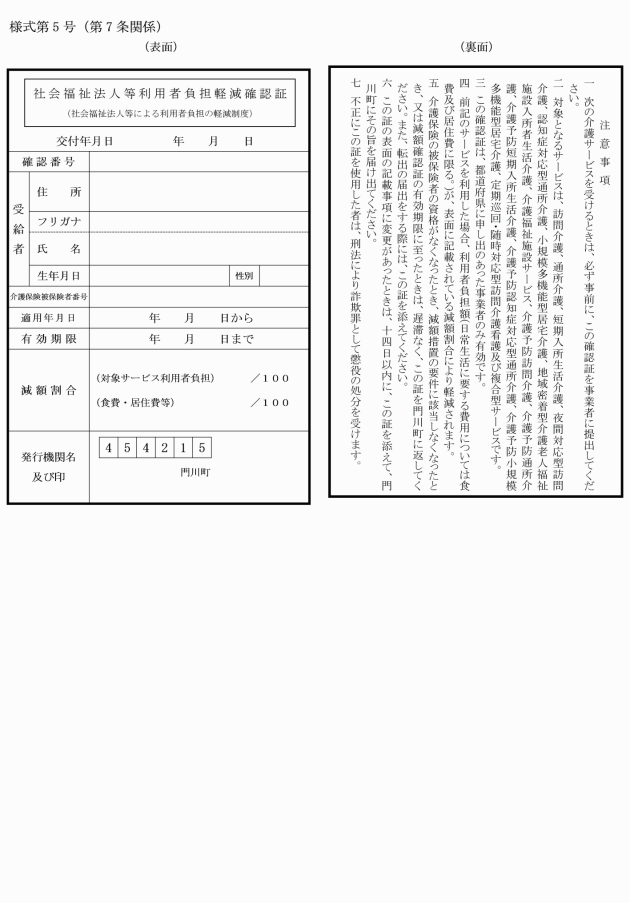 様式第5号（第7条関係）
（表面）
社会福祉法人等利用者負担軽減確認証
（社会福祉法人等による利用者負担の軽減制度）
交付年月日　年　月　日
確認番号
受給者
住所
フリガナ
氏名
生年月日　性別
介護保険被保険者番号
適用年月日　年　月　日から
有効期限　年　月　日まで
減額割合
（対象サービス利用者負担）　／100
（食費・居住費等）　／100
発行機関名
及び印
454215
門川町
（裏面）
注意事項
一　次の介護サービスを受けるときは、必ず事前に、この確認証を事業者に提出してくだ
さい。
二　対象となるサービスは、訪問介護、通所介護、短期入所生活介護、夜間対応型訪問
介護、認知症対応型通所介護、小規模多機能型居宅介護、地域密着型介護老人福祉
施設入所者生活介護、介護福祉施設サービス、介護予防訪問介護、介護予防通所介
護、介護予防短期入所生活介護、介護予防認知症対応型通所介護、介護予防小規模
多機能型居宅介護、定期巡回・随時対応型訪問介護看護及び複合型サービスです。
三　この確認証は、都道府県に申し出のあった事業者のみ有効です。
四　前記のサービスを利用した場合、利用者負担額（日常生活に要する費用については食
費及び居住費に限る。）が、表面に記載されている減額割合により軽減されます。
五　介護保険の被保険者の資格がなくなったとき、減額措置の要件に該当しなくなったと
き、又は減額確認証の有効期限に至ったときは、遅滞なく、この証を門川町に返してく
ださい。また、転出の届出をする際には、この証を添えてください。
六　この証の表面の記載事項に変更があったときは、十四日以内に、この証を添えて、門
川町にその旨を届け出てください。
七　不正にこの証を使用した者は、刑法により詐欺罪として懲役の処分を受けます。